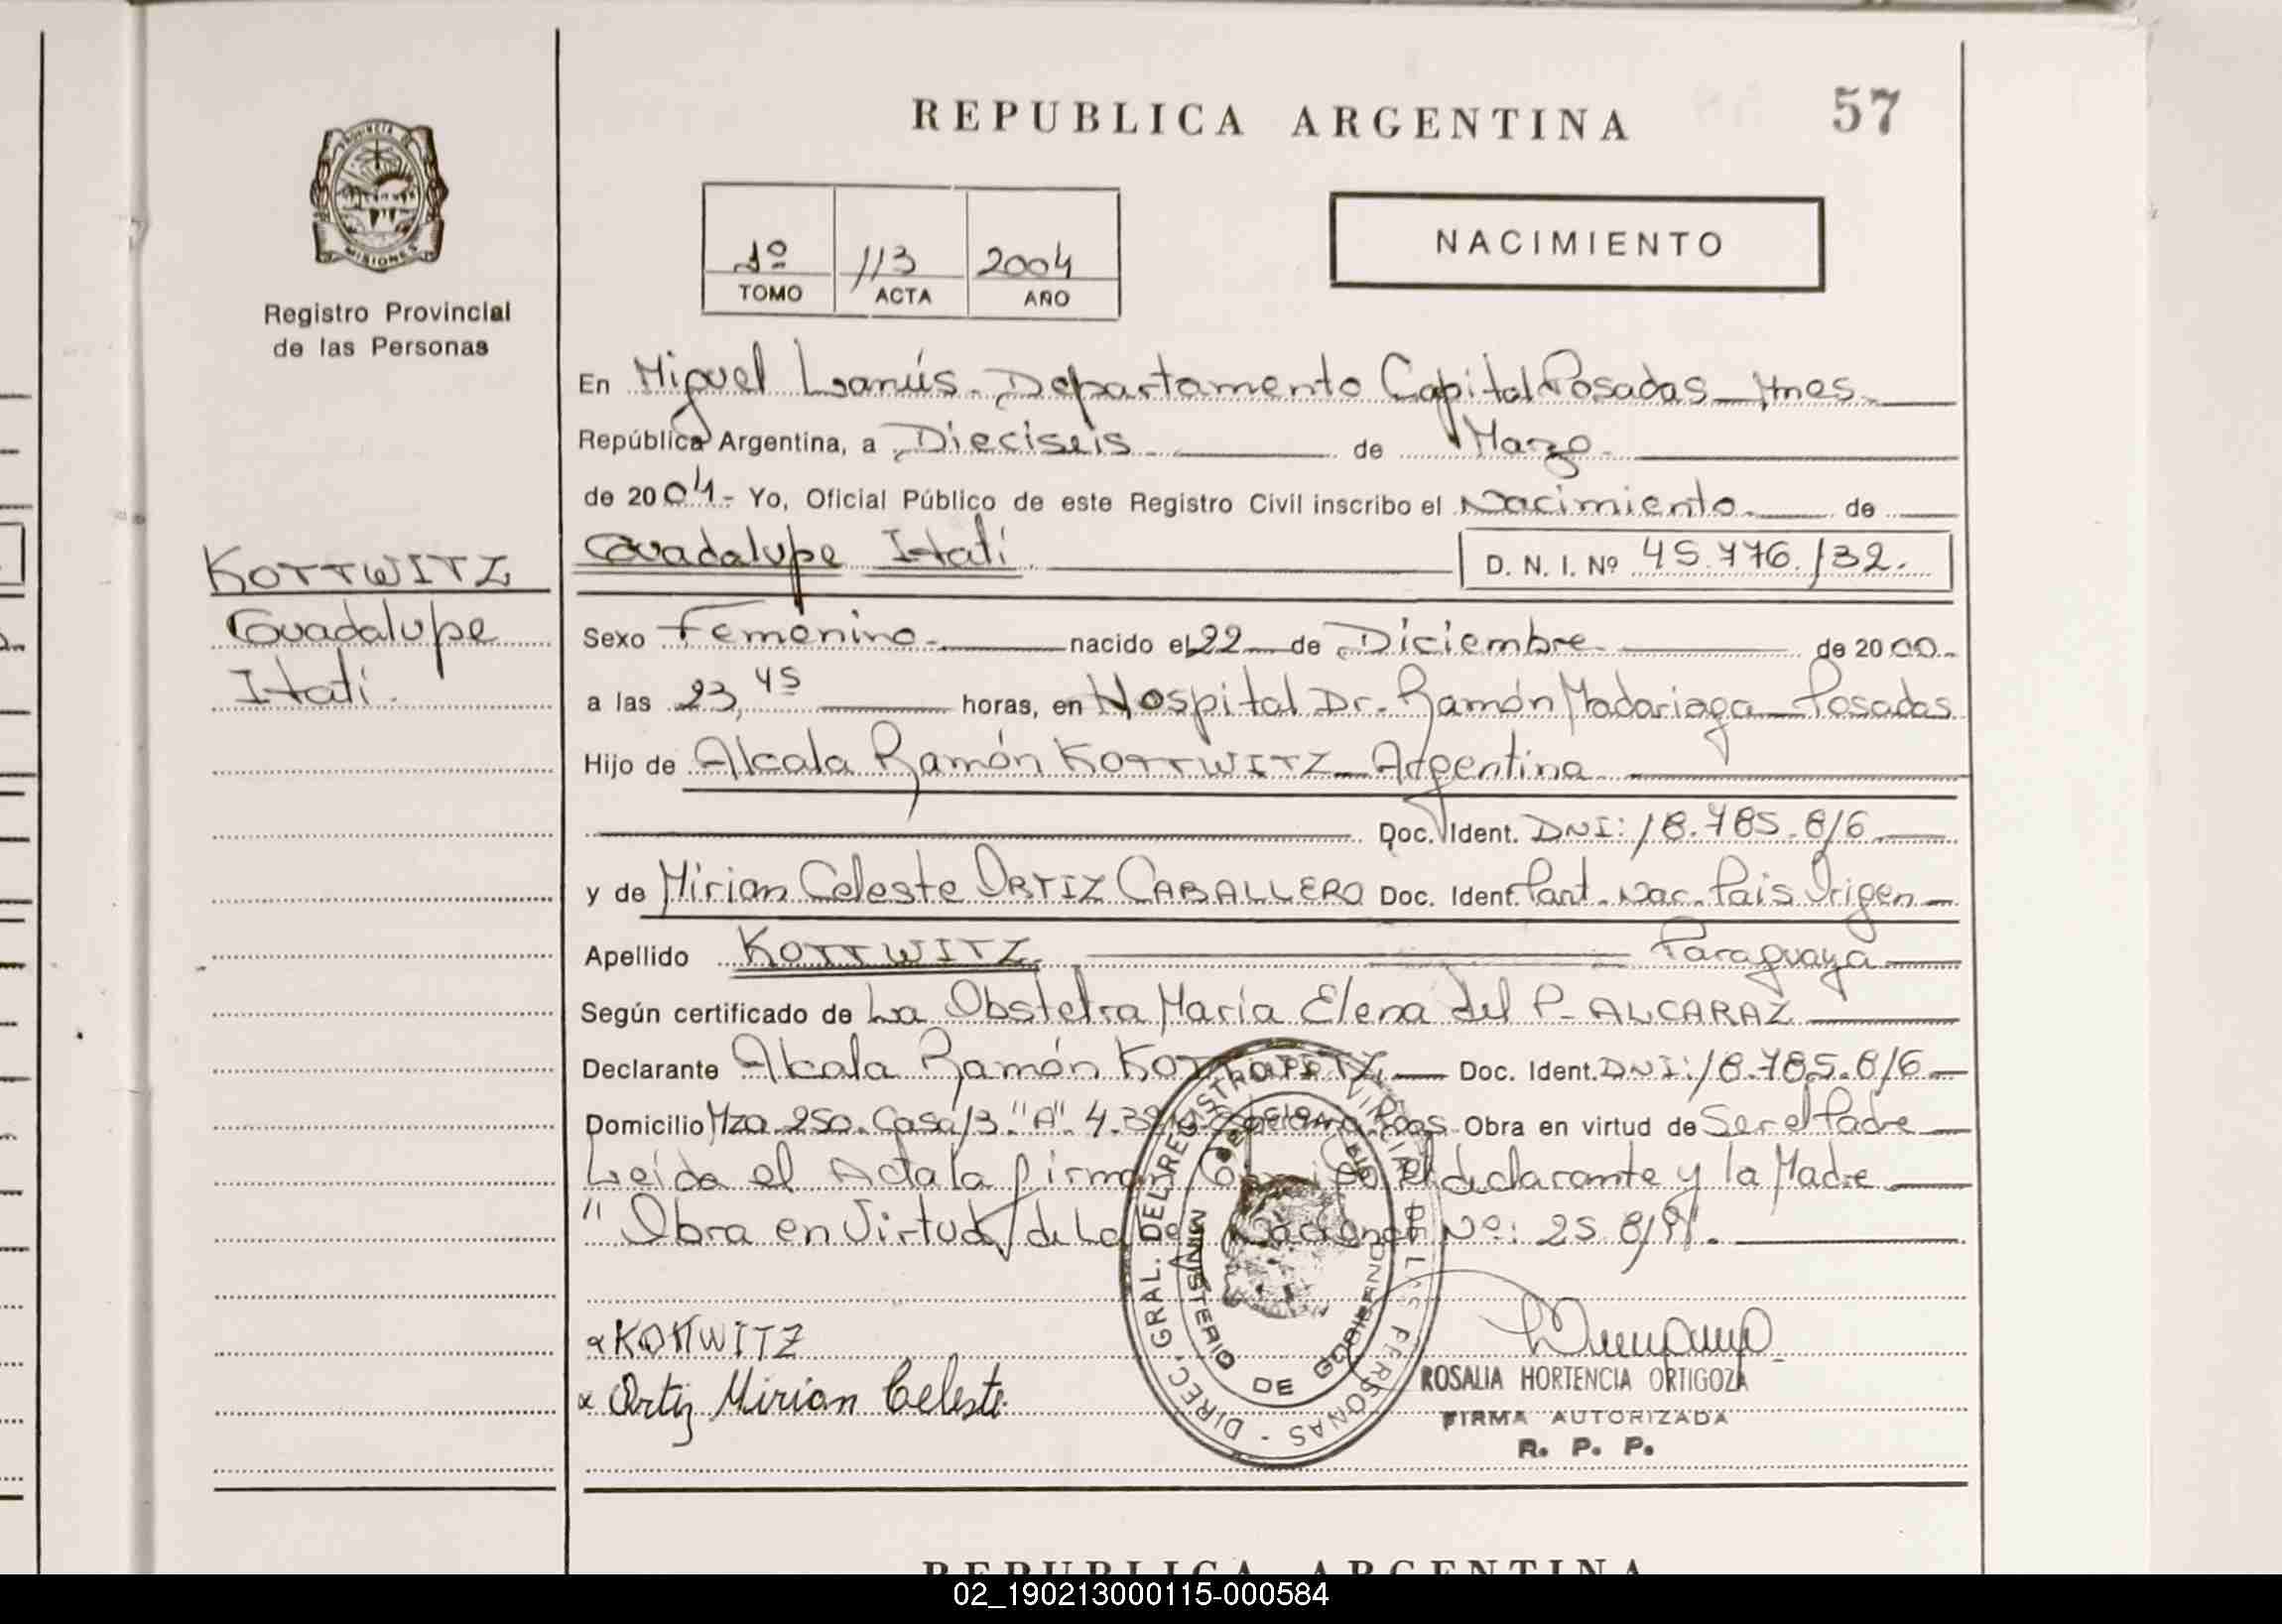 REPUBLICA ARGENTINA
57
PROVINCIA DE
MISIONES
Registro Provincial
de las Personas
1º 113 2004
TOMO ACTA AÑO
NACIMIENTO
En Miguel Lanús - Departamento Capital Posadas - Mnes.
República Argentina, a Dieciseis de Marzo
de 2004.- Yo, Oficial Público de este Registro Civil inscribo el Nacimiento de
Guadalupe Itatí
D. N. I. Nº 45.776.132.
KOTTWITZ
Guadalupe
Itatí.
Sexo Femenino.- nacido el 22 de Diciembre de 2000.-
a las 23,45 horas, en Hospital Dr. Ramón Madariaga - Posadas
Hijo de Alcala Ramón KOTTWITZ - Argentina
Doc. Ident. DNI: 18.785.816
y de Mirian Celeste ORTIZ CABALLERO Doc. Ident. Part. Nac. Pais Origen -
Apellido KOTTWITZ. Paraguaya
Según certificado de La Obstetra María Elena del P. ALCARAZ
Declarante Alcala Ramón KOTTWITZ. Doc. Ident. DNI: 18.785.816
Domicilio Mza. 250. Casa 13. "A" 4. Pdas. Obra en virtud de Ser el Padre
Leída el Acta la firman el declarante y la Madre
"Obra en Virtud de La Ley Nacional Nº: 25.819".
KOTTWITZ
Ortiz Mirian Celeste.
DIREC. GRAL. DEL REGISTRO PROVINCIAL DE LAS PERSONAS -
MINISTERIO DE GOBIERNO
ROSALIA HORTENCIA ORTIGOZA
FIRMA AUTORIZADA
R. P. P.
REPUBLICA ARGENTINA
02_190213000115-000584